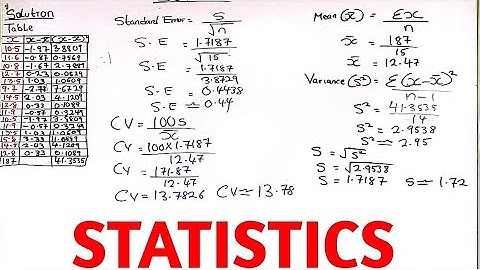 Solution
Table
x x-x̄ (x-x̄)²
10.5 -1.97 3.8809
11.6 -0.87 0.7569
10.8 -1.67 2.7889
12.7 0.23 0.0529
13.5 1.03 1.0609
9.7 -2.77 7.6729
14.5 2.03 4.1209
12.8 0.33 0.1089
11.9 -0.57 0.3249
10.5 -1.97 3.8809
11.9 -0.57 0.3249
13.5 1.03 1.0609
14.5 2.03 4.1209
12.8 0.33 0.1089
187 41.3535
Standard Error = S
√n
S.E = 1.7187
√15
S.E = 1.7187
3.8729
S.E = 0.4438
S.E ≃ 0.44
CV = 100S
x̄
CV = 100×1.7187
12.47
CV = 171.87
12.47
CV = 13.7826 CV ≃ 13.78
Mean (x̄) = Σx
n
x̄ = 187
15
x̄ = 12.47
Variance (S²) = Σ(x-x̄)²
n-1
S² = 41.3535
14
S² = 2.9538
S² ≃ 2.95
S = √S²
S = √2.9538
S = 1.7187 S ≃ 1.72
STATISTICS